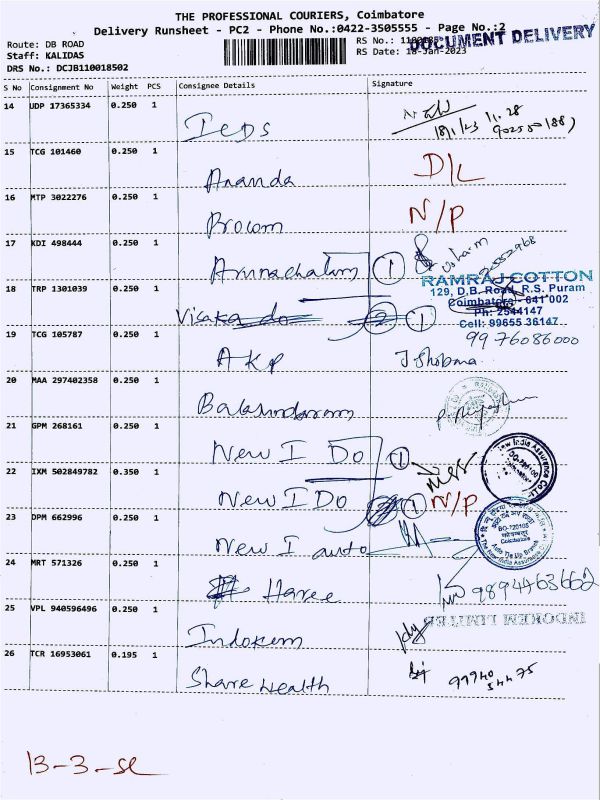 THE PROFESSIONAL COURIERS, Coimbatore
Delivery Runsheet - PC2 - Phone No.:0422-3505555 - Page No.:2
Route: DB ROAD
RS No.:
DOCUMENT DELIVERY
Staff: KALIDAS
RS Date: 18-Jan-2023
DRS No.: DCJB110018502
S No Consignment No Weight PCS Consignee Details Signature
14 UDP 17365334 0.250 1
18/1/23 11.28
15 TCG 101460 0.250 1 Ananda D/L
16 MTP 3022276 0.250 1 Procom N/P
17 KDI 498444 0.250 1 Arunachalam 1
RAMRAJ COTTON
129, D.B. Road, R.S. Puram
Coimbatore - 641 002
Ph: 2544147
Cell: 99655 36147
18 TRP 1301039 0.250 1 Visaka do 2 1
9976086000
19 TCG 105787 0.250 1 AKP J Shobana
20 MAA 297402358 0.250 1 Balasundaram
21 GPM 268161 0.250 1 New I Do 1
New India Assurance Co. Ltd
22 IXM 502849782 0.350 1 New I DO 1 N/P
23 DPM 662996 0.250 1 New I auto
BO-720105
Coimbatore
Auto Tie Up Branch
24 MRT 571326 0.250 1 Haree 9894463662
25 VPL 940596496 0.250 1 Indokem
INDOKEM LIMITED
26 TCR 16953061 0.195 1 Share Health 99940 54475
13-3-SL